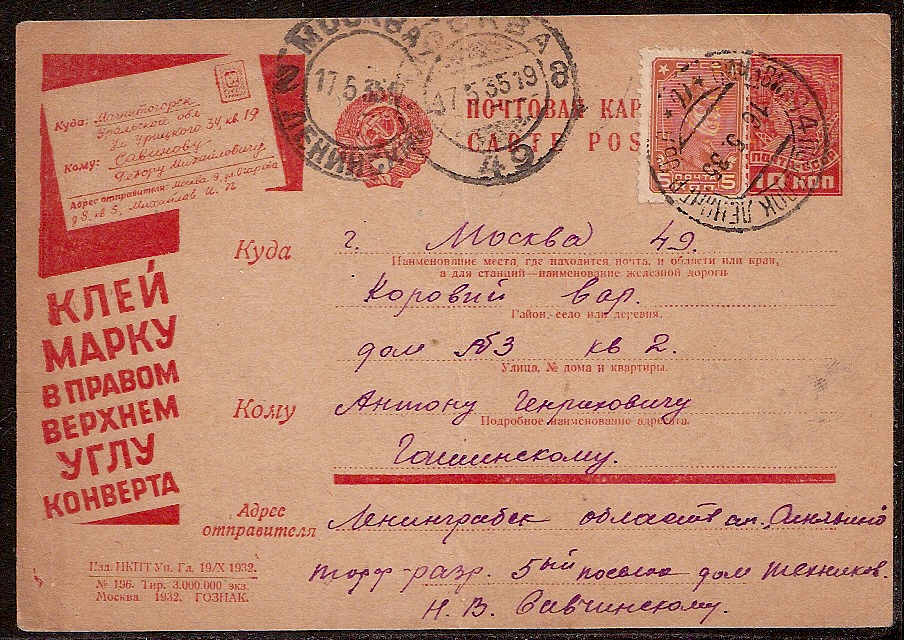 Куда: Магнитогорск
Уральской обл
ул Урицкого 34 кв 19
Кому: Савинову
Федору Михайловичу
Адрес отправителя: Москва 9,
д 8, кв 5, Михайлов И. П
КЛЕЙ
МАРКУ
В ПРАВОМ
ВЕРХНЕМ
УГЛУ
КОНВЕРТА
Изд. НКПТ Уп. Гл. 19/X 1932.
№ 196. Тир. 3.000.000 экз.
Москва 1932. ГОЗНАК.
МОСКВА
17.5.35
МОСКВА
17.5.35 19
49
ПОЧТОВАЯ КАР
CARTE POS
5 ПОЧТА 5
КОП
10 КОП
Куда г. Москва 49.
Наименование места, где находится почта, и области или края,
а для станций—наименование железной дороги
Коровий вал.
Район, село или деревня.
дом №3 кв 2.
Улица, № дома и квартиры.
Кому Антону Генриховичу
Подробное наименование адресата.
Гашинскому.
Адрес
отправителя
Ленинградск области ст. Синявино
торф-разр. 5ый поселок дом техников.
Н. В. Савчинскому.